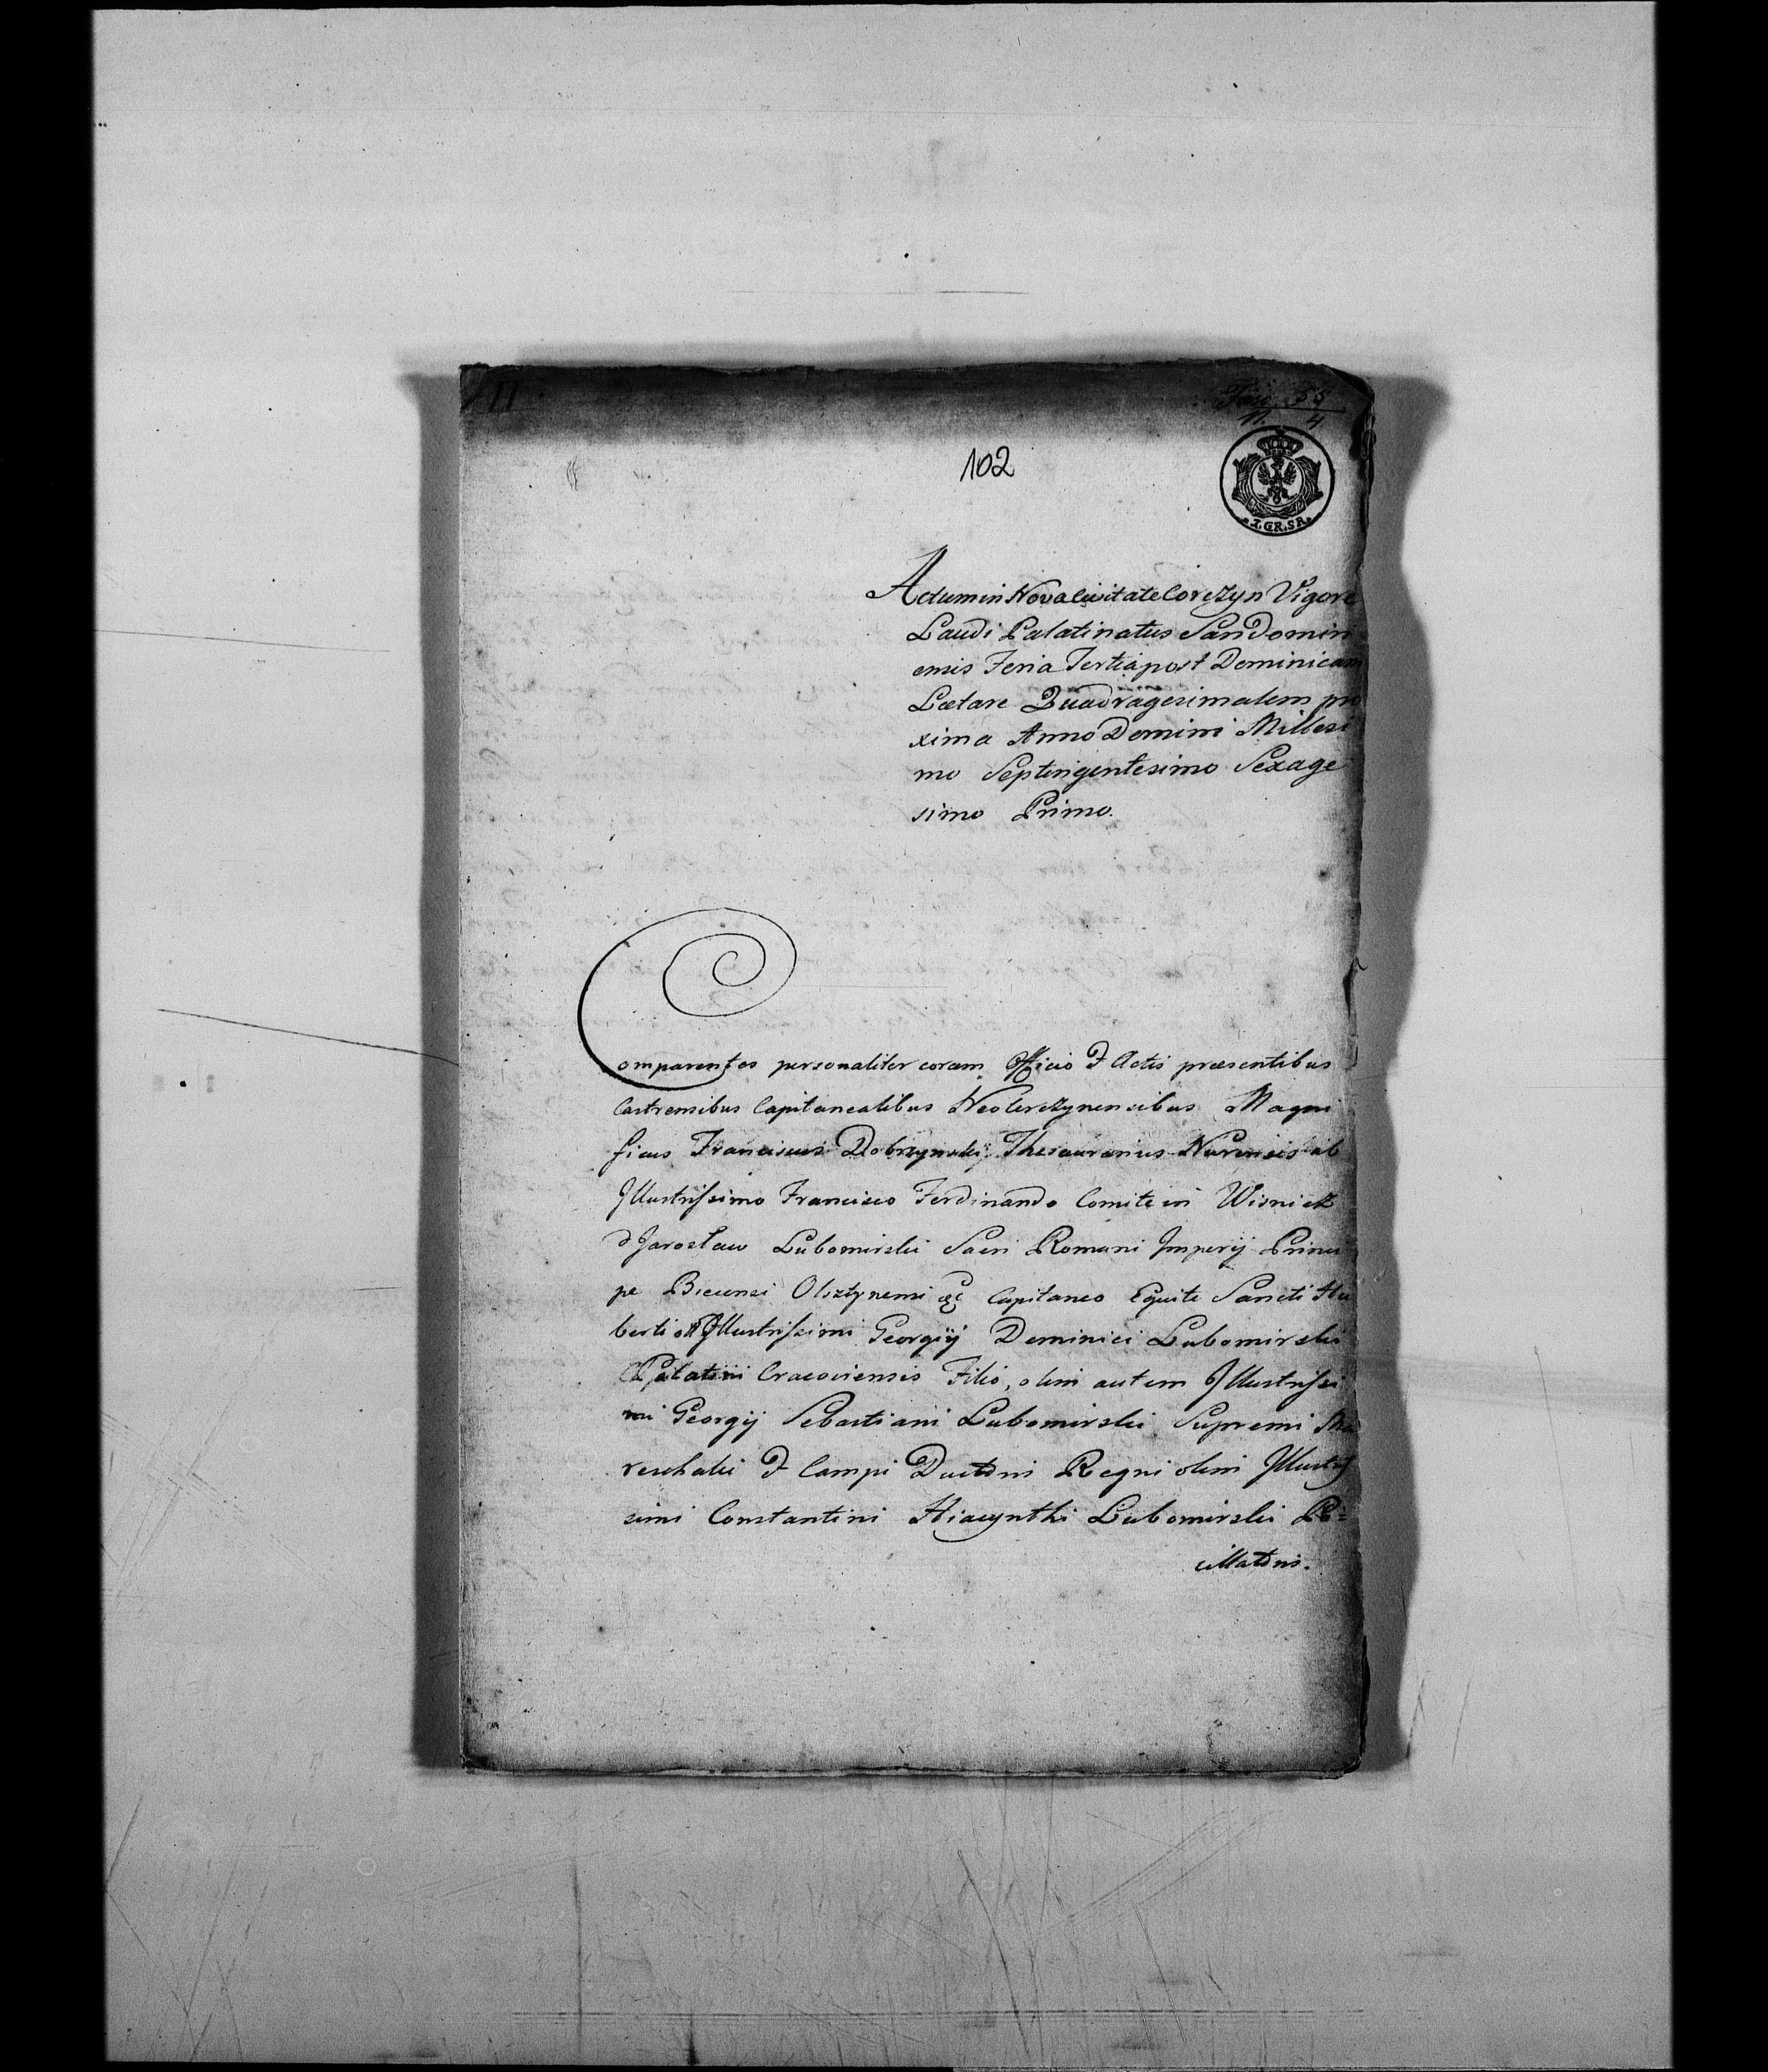 Fasc. 55
N. 4
102
Z.GR.SR.
Actum in Nova Civitate Corczyn Vigore
Laudi Palatinatus Sandomiri
ensis Feria Tertia post Dominicam
Lætare Quadragesimalem pro
xima Anno Domini Millesi
mo Septingentesimo Sexage
simo Primo.
Comparentes personaliter coram Officio & Actis præsentibus
Castrensibus Capitanealibus Neolorczynensibus Magni
ficus Franciscus Dobrzynski Thesaurarius Nurensis ab
Illustrissimo Francisco Ferdinando Comite in Wisnicz
& Jarosław Lubomirski Sacri Romani Imperij Princi
pe Biecensi Olsztynensi &c Capitaneo Equite Sancti Hu
berti Illustrissimi Georgij Dominici Lubomirski
Palatini Cracoviensis Filio, olim autem Illustrissi
mi Georgij Sebastiani Lubomirski Supremi Ma
reschalci & Campi Ductoris Regni olim Illustris
simi Constantini Hiacynthi Lubomirski Po=
cillatoris.